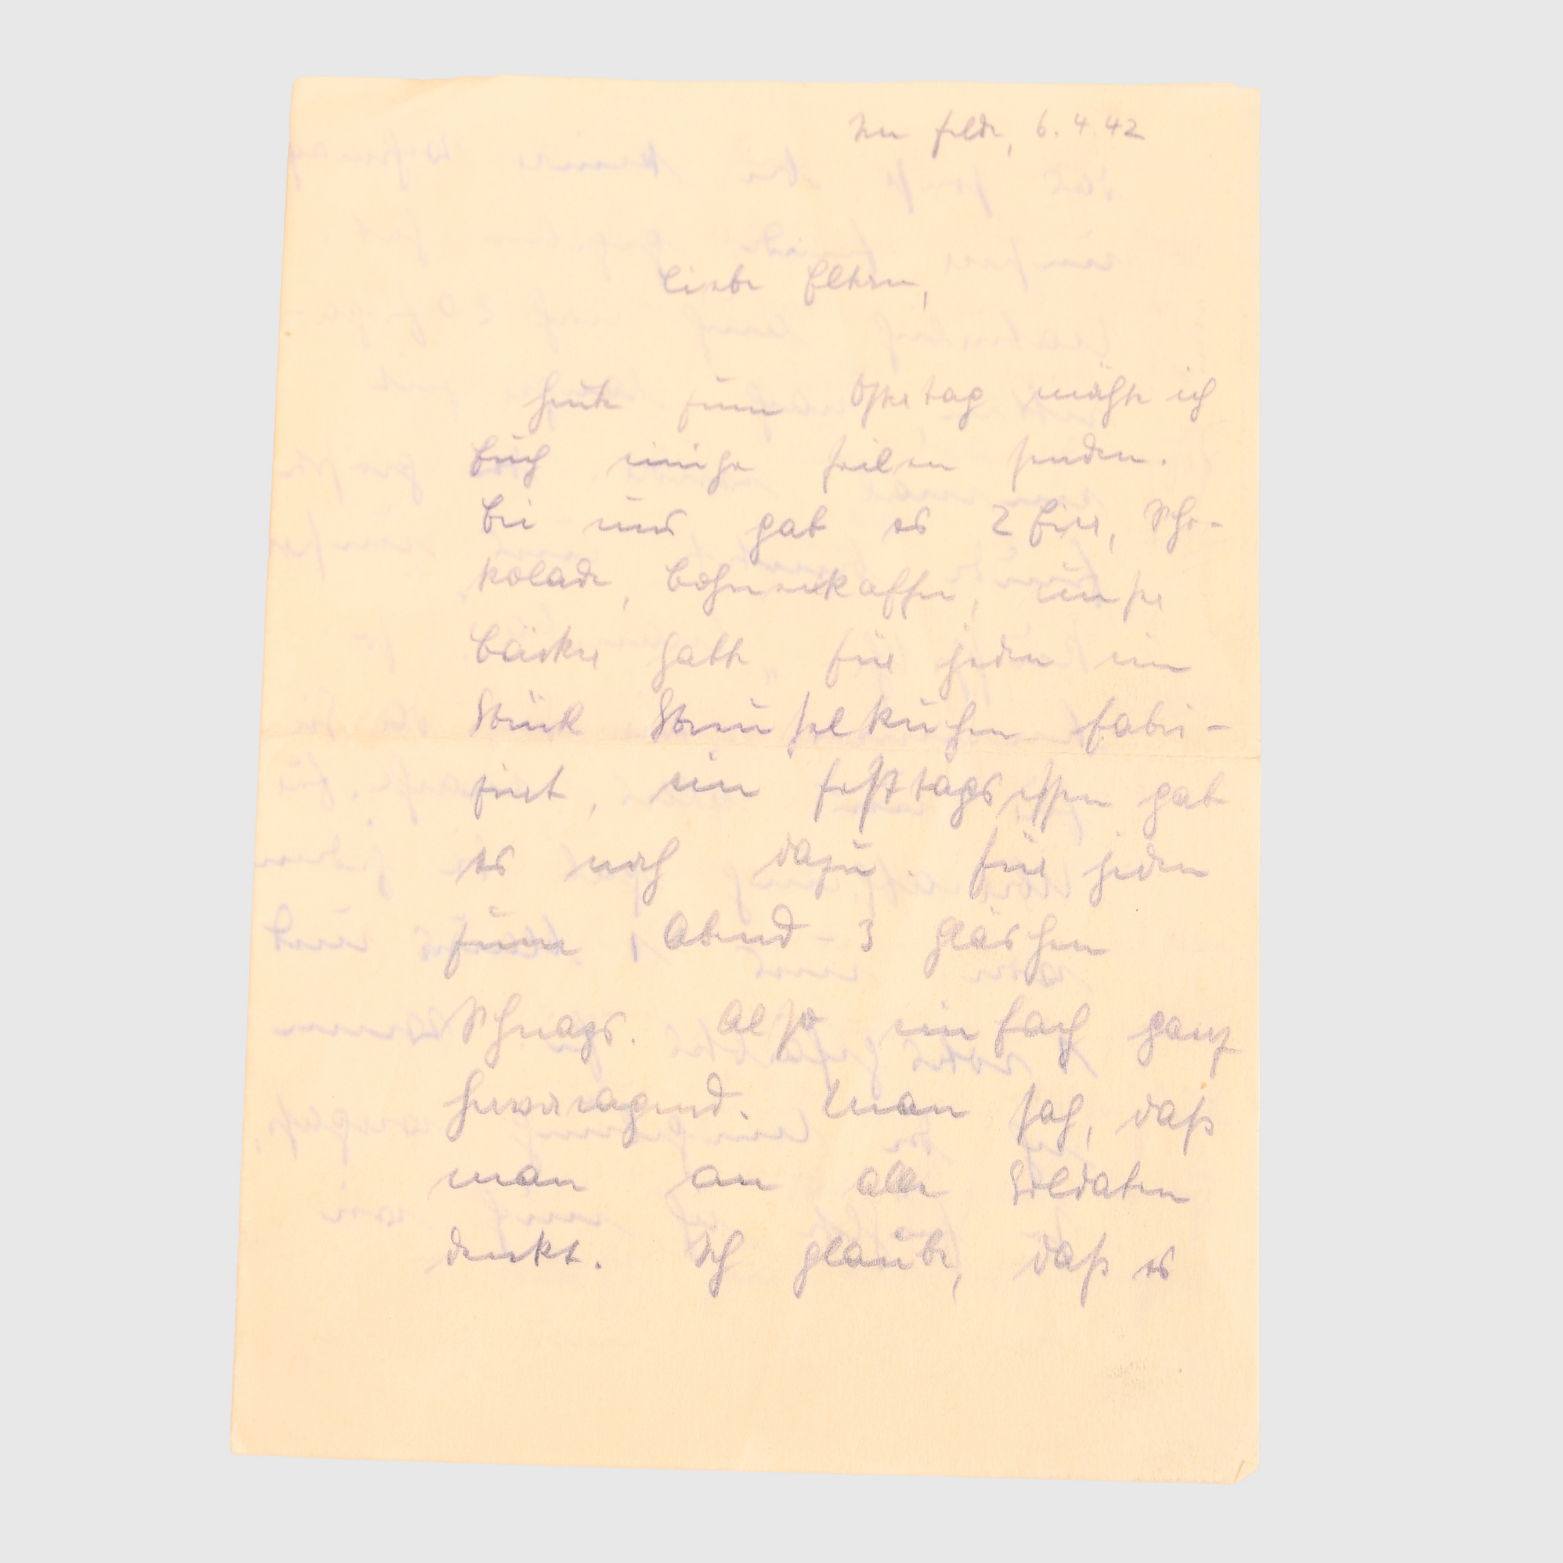 Im Felde, 6.4.42
Liebe Eltern,
Heute zum Ostertag möchte ich
Euch einige Zeilen senden.
Bei uns gab es 2 Eier, Scho-
kolade, Bohnenkaffee, unser
Bäcker hatte für jeden ein
Stück Streuselkuchen fabri-
ziert, ein Festtagsessen gab
es noch dazu. Für jeden
zum Abend 3 Gläschen
Schnaps. Also einfach ganz
hervorragend. Man sah, daß
man an alle Soldaten
denkt. Ich glaube, daß es